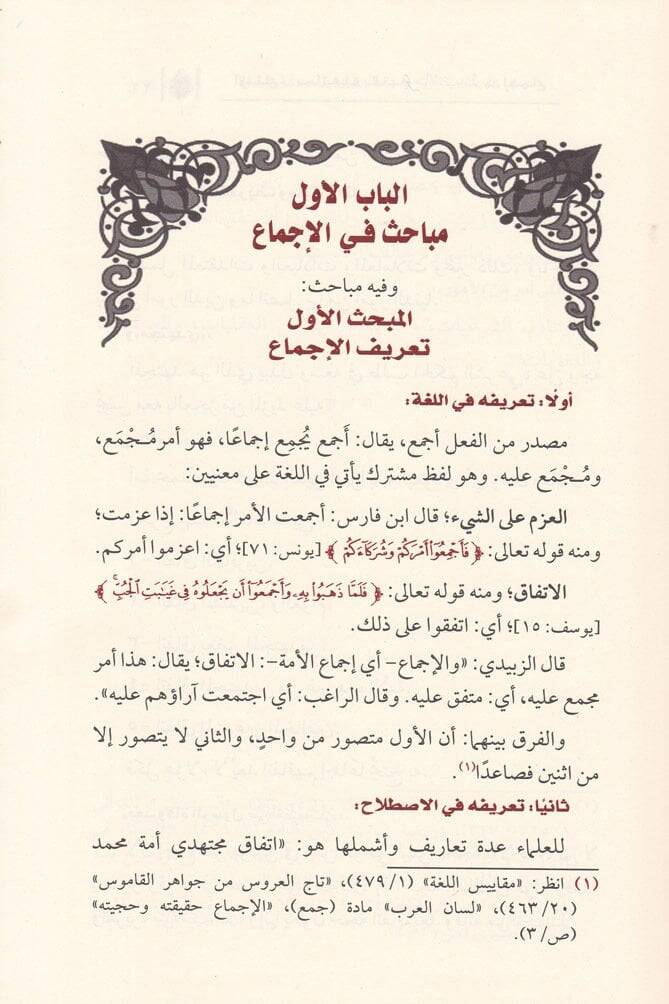 الباب الأول
مباحث في الإجماع
وفيه مباحث:
المبحث الأول
تعريف الإجماع
أولًا: تعريفه في اللغة:
مصدر من الفعل أجمع، يقال: أَجمع يُجمِع إجماعًا، فهو أمر مُـجْمَع،
ومُـجْمَع عليه. وهو لفظ مشترك يأتي في اللغة على معنيين:
العزم على الشيء؛ قال ابن فارس: أجمعت الأمر إجماعًا: إذا عزمت؛
ومنه قوله تعالى: ﴿فَأَجْمِعُوٓا۟ أَمْرَكُمْ وَشُرَكَآءَكُمْ﴾ [يونس: ٧١]؛ أي: اعزموا أمركم.
الاتفاق؛ ومنه قوله تعالى: ﴿فَلَمَّا ذَهَبُوا۟ بِهِۦ وَأَجْمَعُوٓا۟ أَن يَجْعَلُوهُ فِى غَيَـٰبَتِ ٱلْجُبِّ ۚ﴾
[يوسف: ١٥]؛ أي: اتفقوا على ذلك.
قال الزبيدي: «والإجماع- أي إجماع الأمة-: الاتفاق؛ يقال: هذا أمر
مجمع عليه، أي: متفق عليه. وقال الراغب: أي اجتمعت آراؤهم عليه».
والفرق بينهما: أن الأول متصور من واحدٍ، والثاني لا يتصور إلا
من اثنين فصاعدًا(١).
ثانيًا: تعريفه في الاصطلاح:
للعلماء عدة تعاريف وأشملها هو: «اتفاق مجتهدي أمة محمد
(١) انظر: «مقاييس اللغة» (١/ ٤٧٩)، «تاج العروس من جواهر القاموس»
(٢٠/ ٤٦٣)، «لسان العرب» مادة (جمع)، «الإجماع حقيقته وحجيته»
(ص/ ٣).